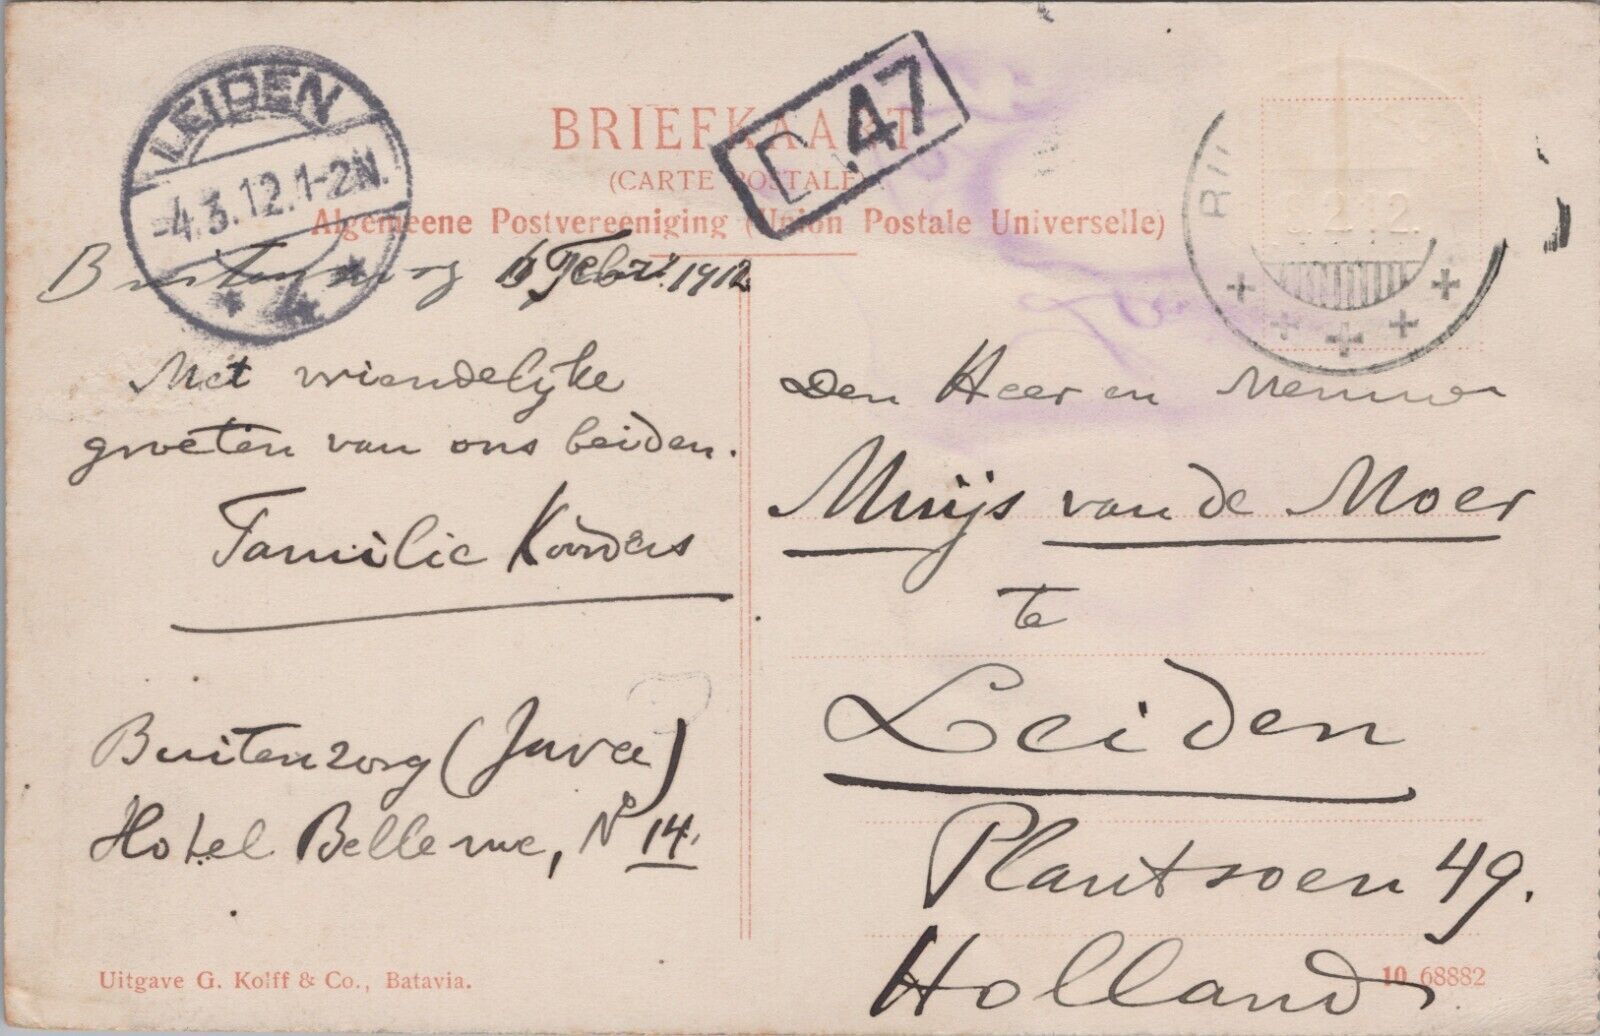 LEIDEN
-4.3.12.1-2N.
47
BRIEFKAART
(CARTE POSTALE)
Algemeene Postvereeniging (Union Postale Universelle)
2.12.
Buitenzorg Febr. 1912
Met vriendelijke
groeten van ons beiden.
Familie Koorders
Buitenzorg (Java)
Hotel Bellevue, No 14.
Den Heer en Mevrouw
Muijs van de Moer
te
Leiden
Plantsoen 49.
Holland
Uitgave G. Kolff & Co., Batavia.
10 68882